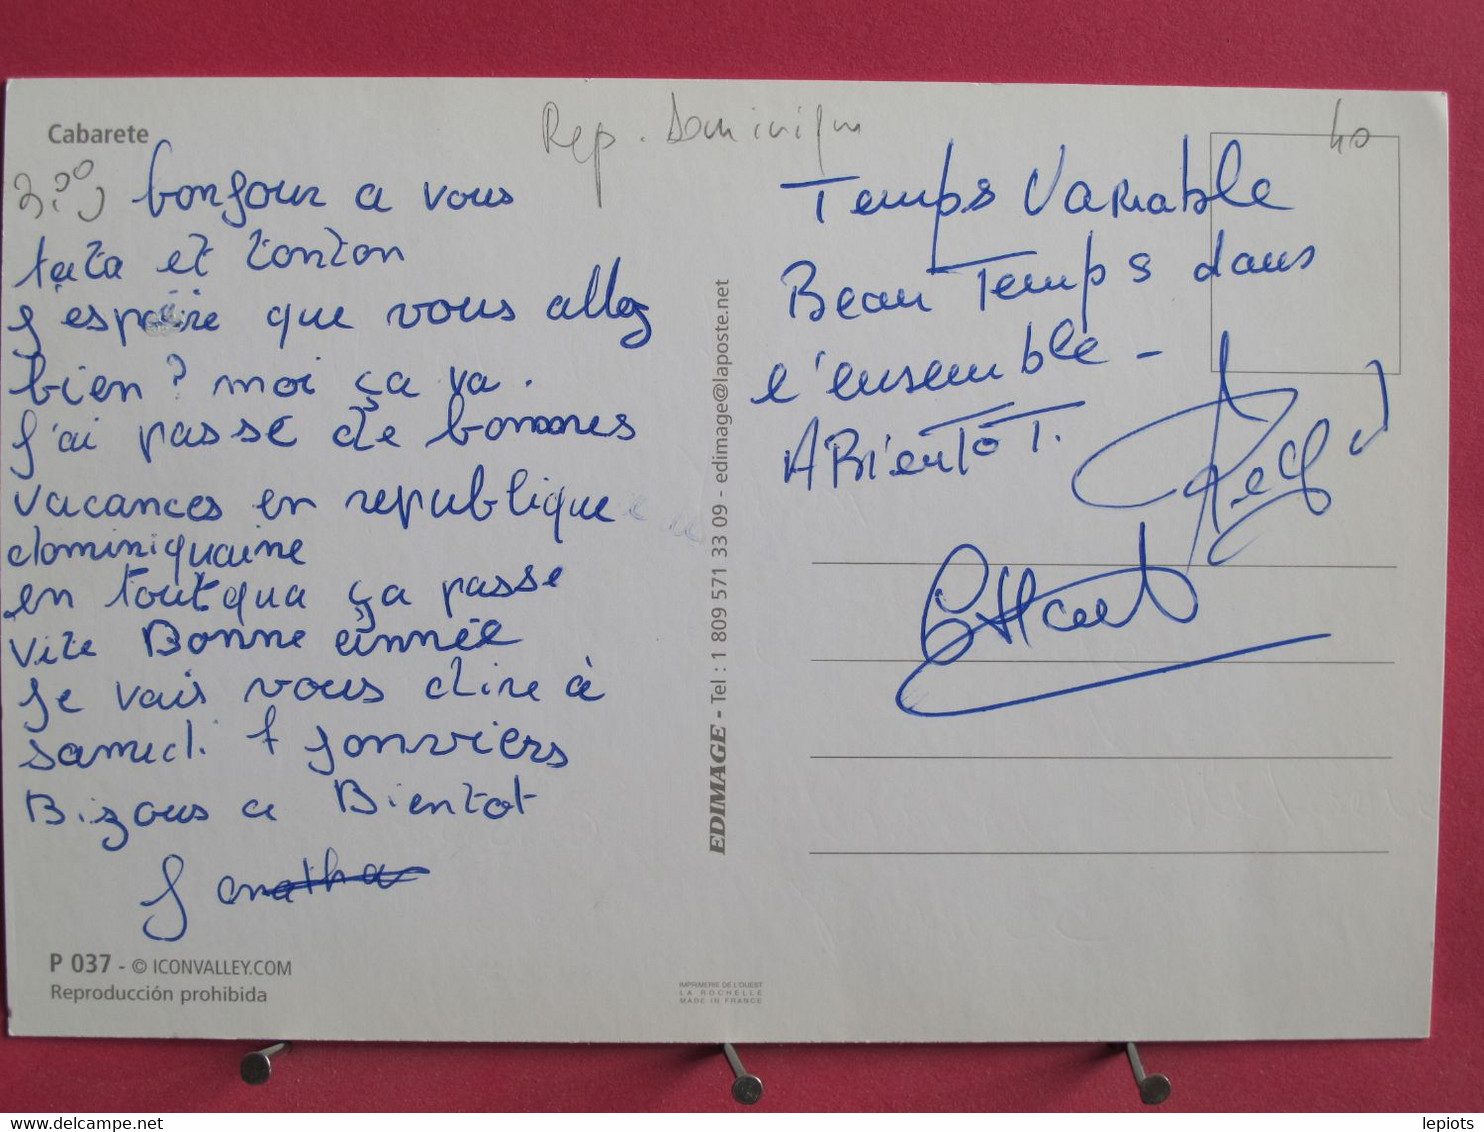 Cabarete
Rep. Dominiqu
40
bonjour a vous
tata et tonton
J'espère que vous allez
bien ? moi ça va .
J'ai passé de bonnes
vacances en republique
dominiquaine
en tout qua ça passe
vite Bonne année
Je vais vous dire à
samedi 7 Jonviers
Bizous a Bientot
Jonatha
P 037 - © ICONVALLEY.COM
Reproducción prohibida
EDIMAGE - Tel : 1 809 571 33 09 - edimage@laposte.net
IMPRIMERIE DE L'OUEST
LA ROCHELLE
MADE IN FRANCE
Temps Variable
Beau Temps dans
l'ensemble -
A BientôT.
lepiots